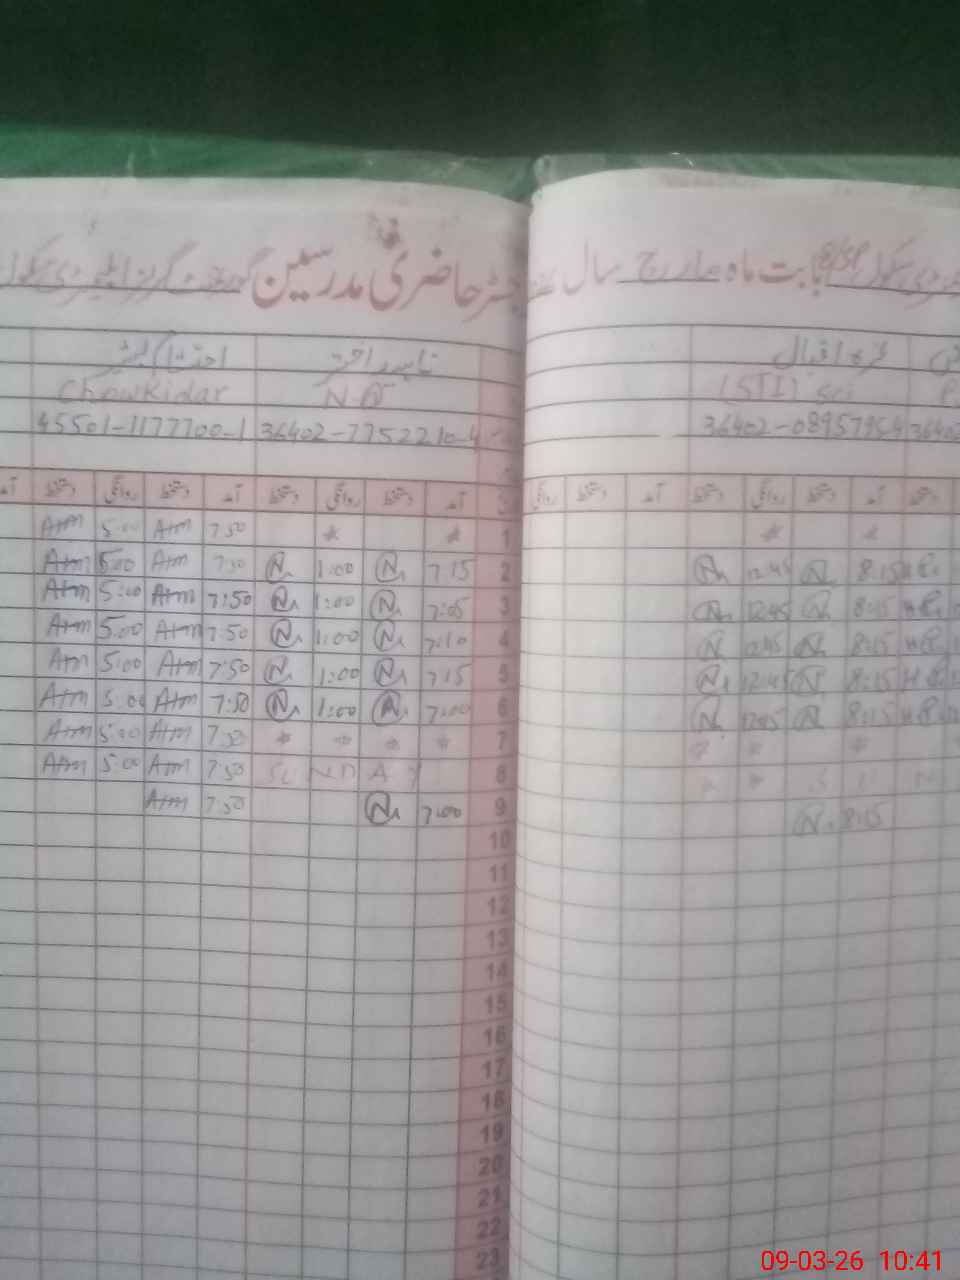 رجسٹر حاضری مدرسین گورنمنٹ گرلز
بابت ماہ مارچ سال
اقبال
Chowkidar N-Q
(STI) Sci
45501-1177700-1 36402-7752210-4
36402-0895795-4 36402
آمد دستخط روانگی دستخط آمد دستخط روانگی دستخط آمد
روانگی دستخط آمد دستخط روانگی دستخط آمد دستخط
Atm 5:00 Atm 7:50 * * 1 * *
Atm 5:00 Atm 7:50 N 1:00 N 7:15 2 N 12:45 N 8:15
Atm 5:00 Atm 7:50 N 1:00 N 7:05 3 N 12:45 N 8:15
Atm 5:00 Atm 7:50 N 1:00 N 7:10 4 N 12:45 N 8:15
Atm 5:00 Atm 7:50 N 1:00 N 7:15 5 N 12:45 N 8:15
Atm 5:00 Atm 7:50 N 1:00 N 7:00 6 N 12:45 N 8:15
Atm 5:00 Atm 7:50 * * * * 7 * * *
Atm 5:00 Atm 7:50 SUNDAY 8 * * S U N
Atm 7:50 N 7:00 9 N 8:15
10
11
12
13
14
15
16
17
18
19
20
21
22
23
09-03-26 10:41